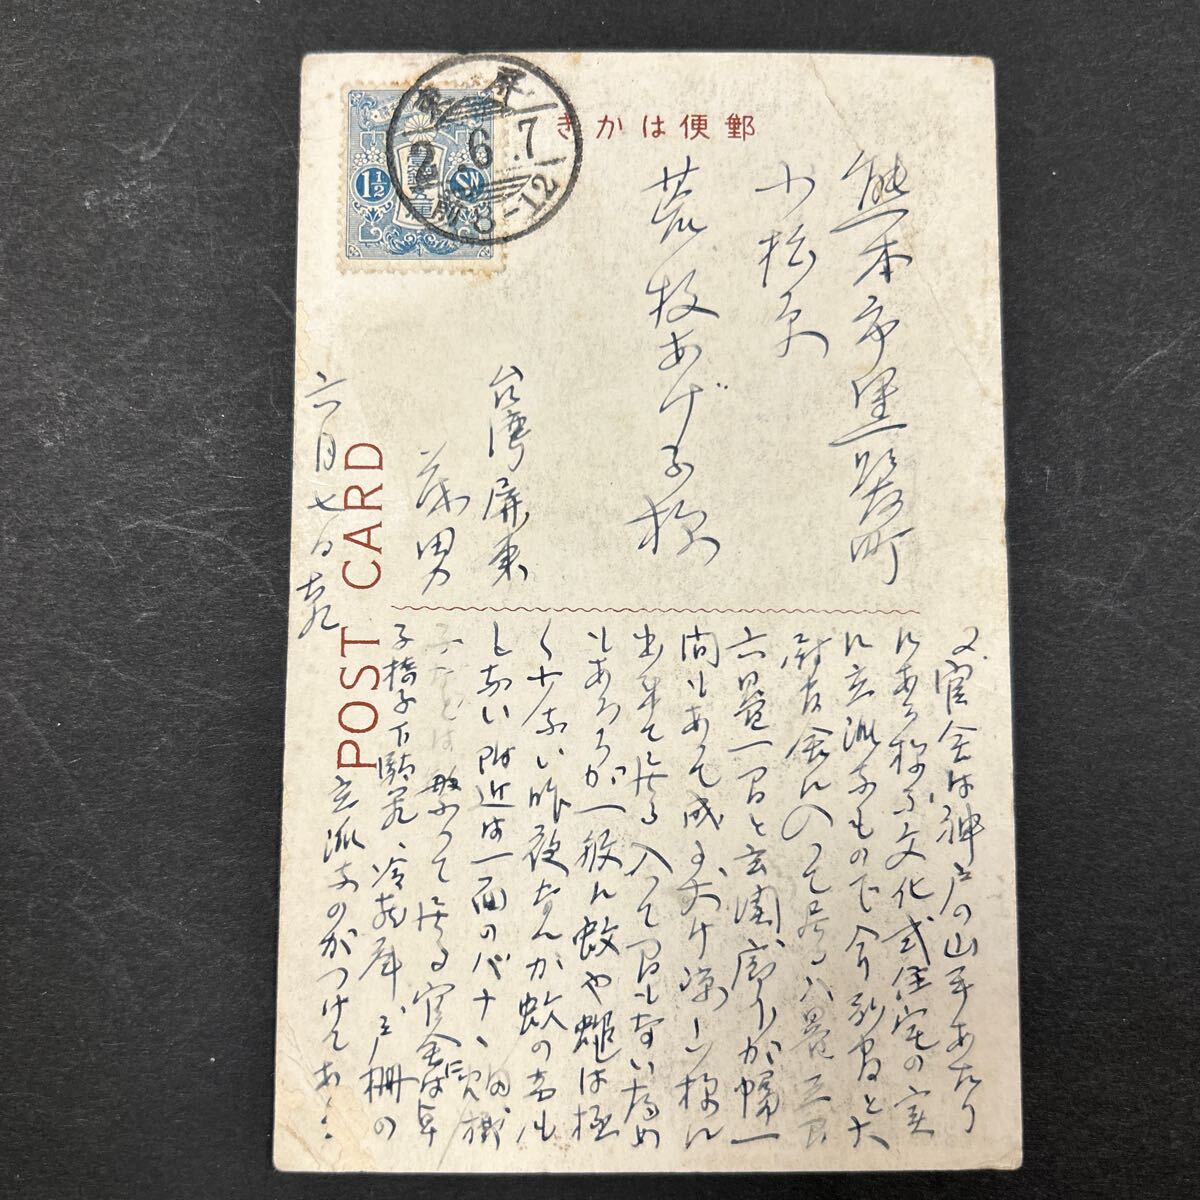 郵便はかき
屏東
2.6.7
前8-12
1½
熊本市黒髪町
小松原
荒牧あげ子様
台湾屏東
茂男
六月七日
POST CARD
又官舎は神戸の山手あたり
にある様な文化式住宅の実
に立派なもので今別官と大
尉官舎に入って居る八畳三間
六畳一間と玄関、廊下が幅一
間もあって成る丈け涼しい様に
出来て居る入って間もない為め
もあろうが一般に蚊や蠅は極
く少ない昨夜なんか蚊の音も
しない附近は一面のバナヽ畑、
などは繁って居る官舎には卓
子椅子下駄箱、冷蔵庫、戸棚の
立派なのがつけてある